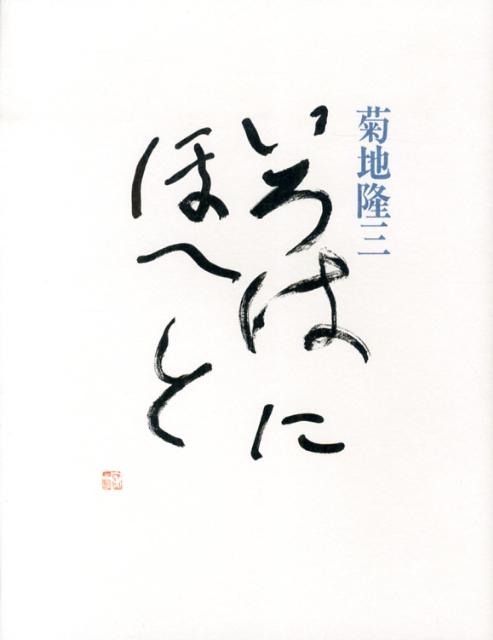 菊地隆三
いろはに
ほへと